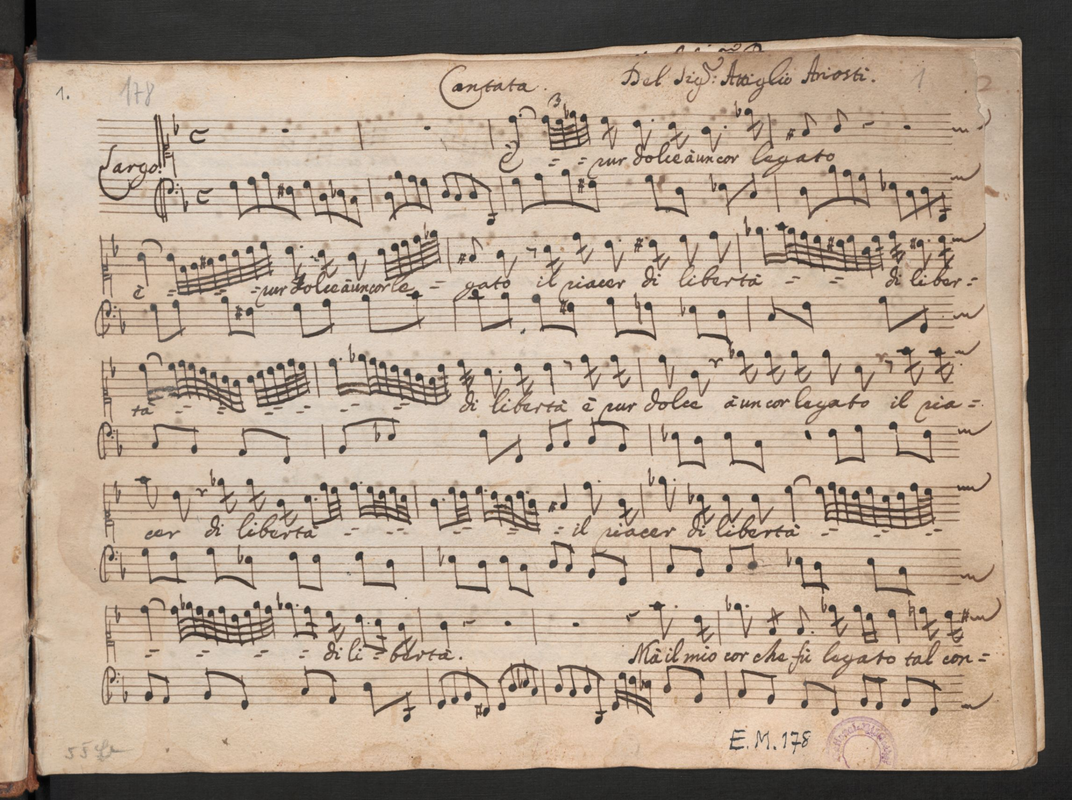 1. 178 Cantata. Del Sigr: Attiglio Ariosti. 1 2
Largo
è - - pur dolce à un cor legato
è - - pur dolce à un cor le - gato il piacer di libertà - - - di liber=
tà - - - - - - di libertà è pur dolce à un cor legato il pia=
cer di libertà - - - - - il piacer di libertà - - - -
- - - - di li - bertà. Mà il mio cor che fù legato tal con=
E.M. 178